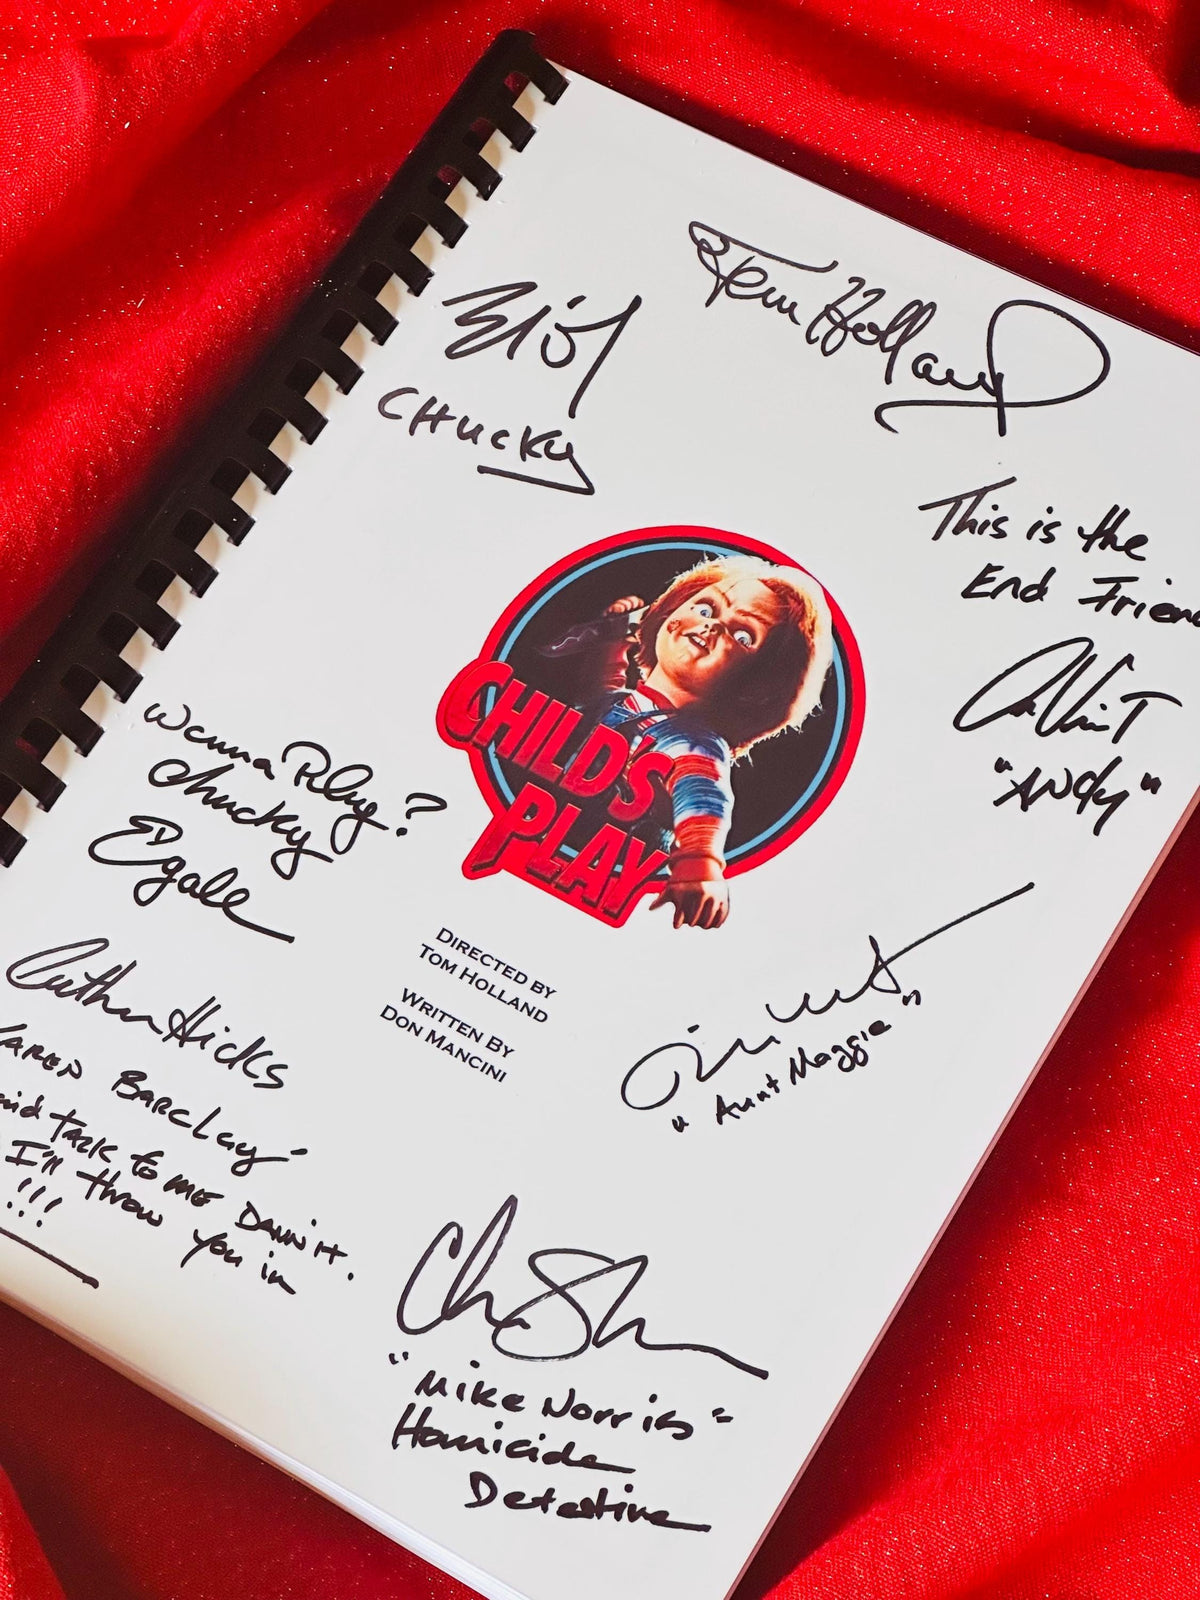 Tom Holland
CHUCKY
This is the
End Frien
"Andy"
CHILD'S
PLAY
Wanna Play?
Chucky
EGale
DIRECTED BY
TOM HOLLAND
WRITTEN BY
DON MANCINI
"Aunt Maggie"
Hicks
KAREN BARCLAY
TALK to ME DAMN IT.
I'll throw you in
!!!
"Mike Norris"
Homicide
Detective